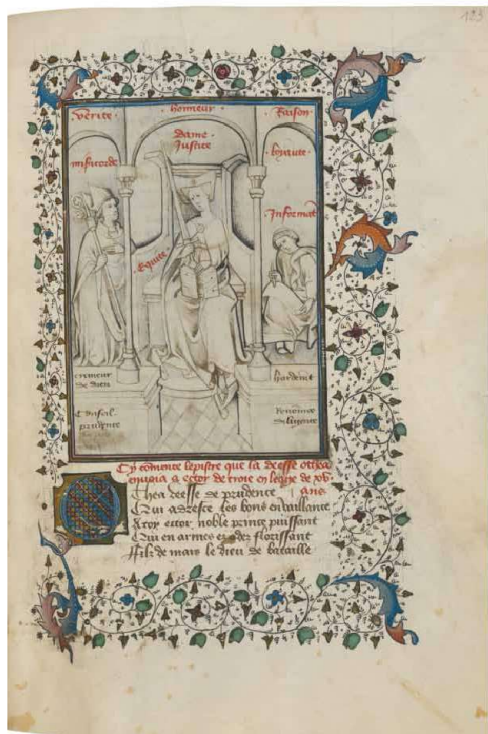 123
verite · honneur · Raison ·
Dame
Justice
misericorde
loyaute ·
· Informat
Equite ·
cremeur
de dieu
hardem̄t
Conseil
prudence
Renom̄ee
de lignie
Cy cōmence lepistre que la deesse othea
enuoia a ector de troie en leage de xv
ans
Othea deesse de prudence
Qui adresce les bons en vaillance
A toy ector noble prince puissant
Qui en armes es adez florissant
Filz de mars le dieu de bataille